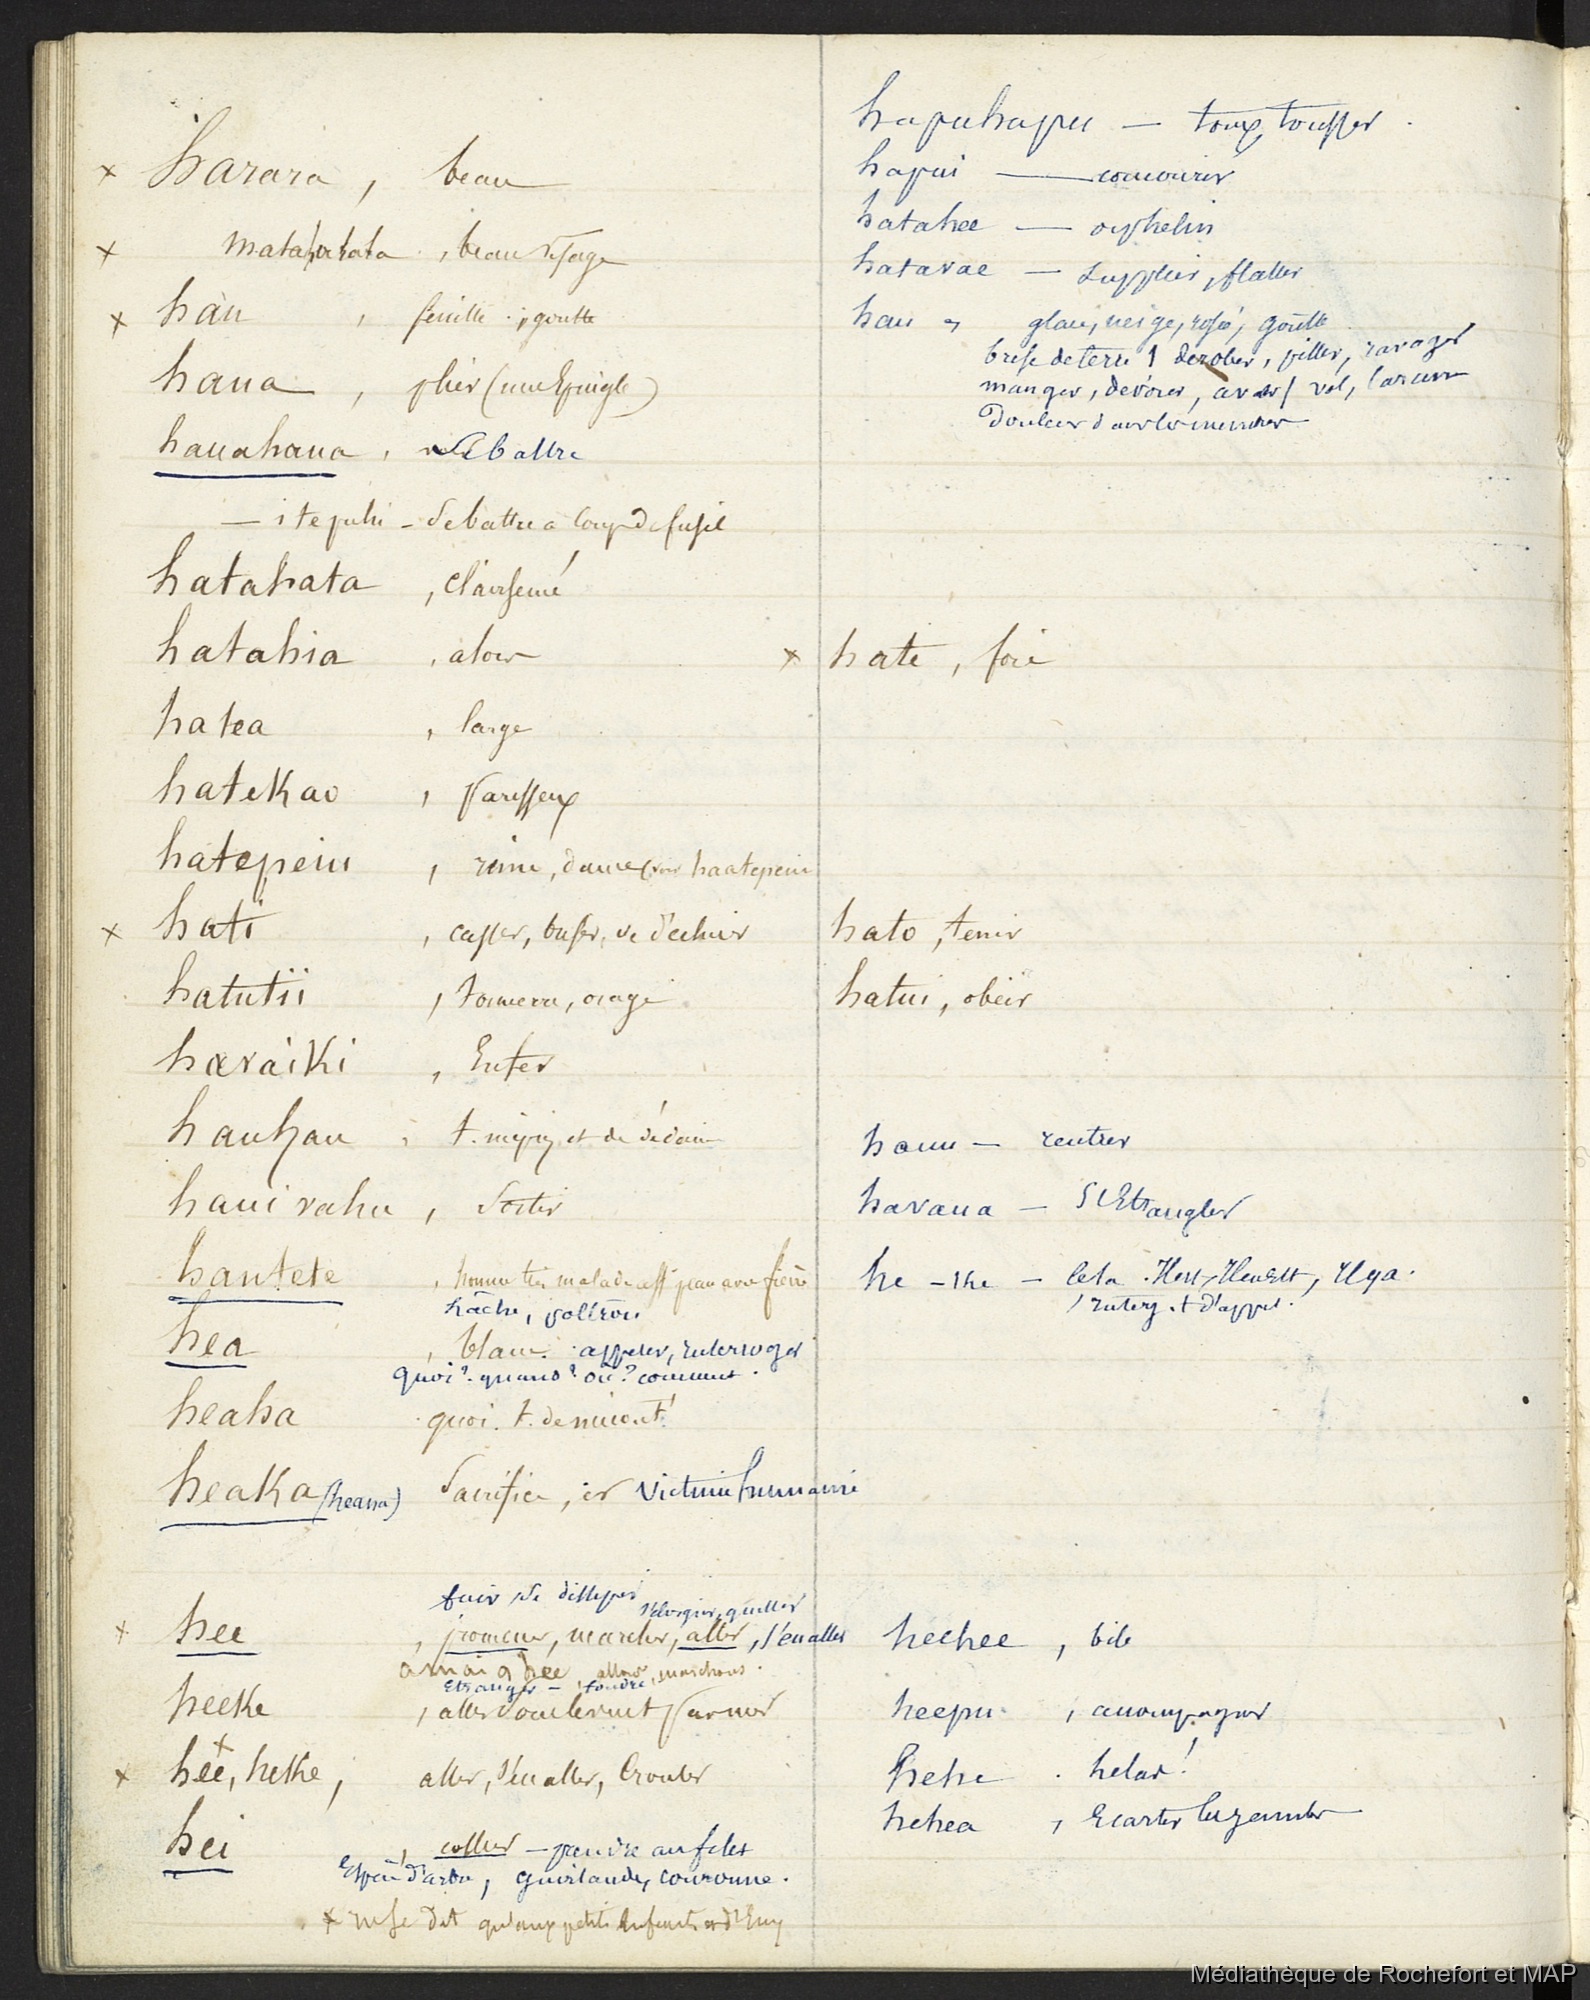 harara, beau
matahahata, beau visage
hau, feuille ; goutte
haua, plier (une Epingle)
hauahaua, se battre
— i te puhi – se battre a coup de fusil
hatahata, clairsemé
hatahia, alors
hatea, large
hatekao, paresseux
hatepeiu, reine, dame (voir haatepeiu
hati, casser, briser, se déchirer
hatutii, tonnerre, orage
havaiki, Enfer
hauhau, t. mépris et de dédain
haui vahu, sortir
hautete, homme très malade
hâche, poltron
hea, blanc. appeler, interroger
quoi? quand? où? comment.
heaha quoi. t. de
heaka (heana) Sacrifice, er victime humaine
fuir se dissiper
s'éloigner, quitter
hee, promener, marcher, aller, s'en aller
a mai a hee, allons, marchons.
Etranger – foudre
heeke, aller doucement
hée, heke, aller, s'en aller, Crouler
hei, collier – prendre au filet
Espèce d'arbre, guirlande, couronne.
x ne se dit qu'aux petits Enfants
hapuhapu — toux, tousser.
hapui — concourir
hatahee — orphelin
hatavae — supplier, flatter
hau glace, neige, rosée, goutte
brise de terre derober, piller, ravager
manger, dévorer, vol, larcin
Douleur dans les membres
x hate, foie
hato, tenir
hatui, obéir
hauu — rentrer
havaua — s'Etrangler
he – ke — Cela.
interj. t d'appel.
heehee, bile
heepu, accompagner
hehe. helas!
hehea, Ecarter les jambes
Médiathèque de Rochefort et MAP